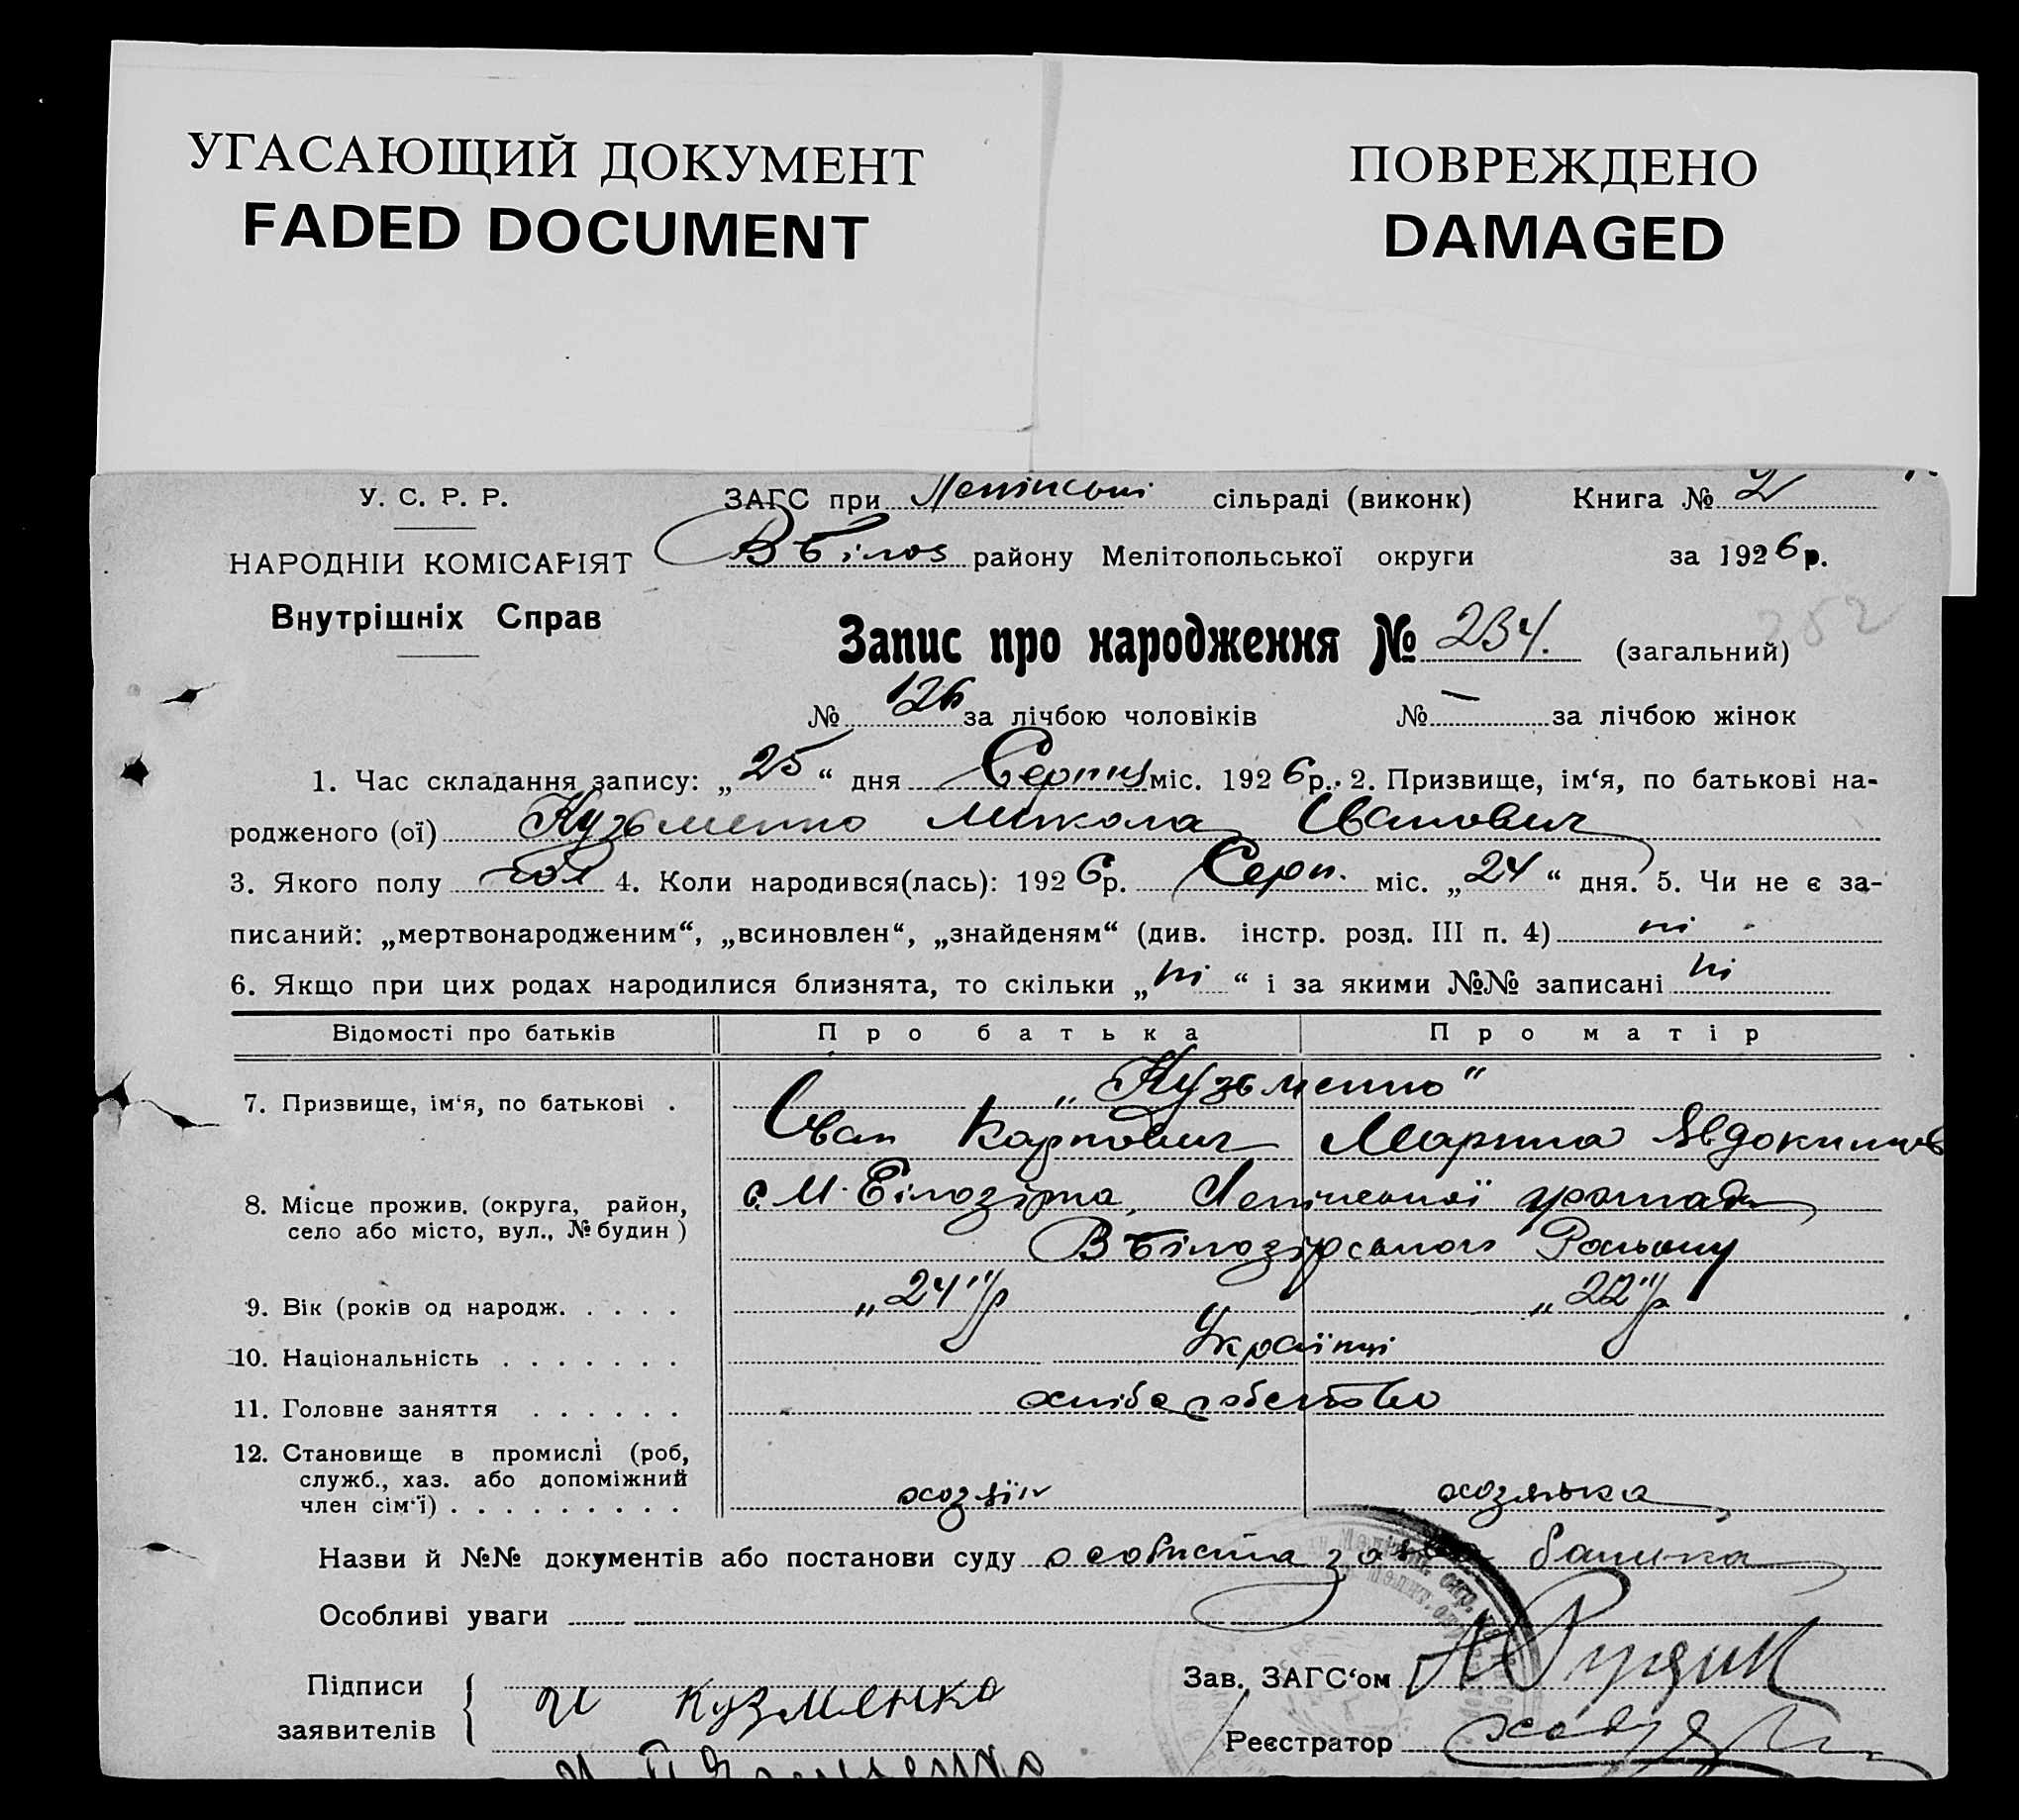 УГАСАЮЩИЙ ДОКУМЕНТ
FADED DOCUMENT
ПОВРЕЖДЕНО
DAMAGED
У. С. Р. Р. ЗАГС при Ленінськi сільраді (виконк) Книга № 2
НАРОДНІЙ КОМІСАРІЯТ В Білоз району Мелітопольської округи за 1926 р.
Внутрішніх Справ
Запис про народження № 234. (загальний) 252
№ 126 за лічбою чоловіків № — за лічбою жінок
1. Час складання запису: „25“ дня Серпня міс. 1926 р. 2. Призвище, ім‘я, по батькові на-
родженого (ої) Кузьменко Микола Іванович
3. Якого полу чол 4. Коли народився(лась): 1926 р. Серп. міс. „24“ дня. 5. Чи не є за-
писаний: „мертвонародженим“, „всиновлен“, „знайденям“ (див. інстр. розд. III п. 4) ні
6. Якщо при цих родах народилися близнята, то скільки „ні“ і за якими №№ записані ні
Відомості про батьків Про батька Про матір
„Кузьменко“
7. Призвище, ім‘я, по батькові .
Іван Карпович Марина Явдокимов
8. Місце прожив. (округа, район, с. М. Білозірка, Ленінської громади
село або місто, вул., № будин) В Білозірського Району
9. Вік (років од народж. . . . . „24“ р „22“ р
10. Національність . . . . . . . Українці
11. Головне заняття . . . . . . хліборобство
12. Становище в промислі (роб,
служб., хаз. або допоміжний
член сім‘ї) . . . . . . . . . хозяїн хозяька
Назви й №№ документів або постанови суду особиста заява батька
Особливі уваги
Підписи Зав. ЗАГС‘ом
заявителів И Кузменко
Реєстратор